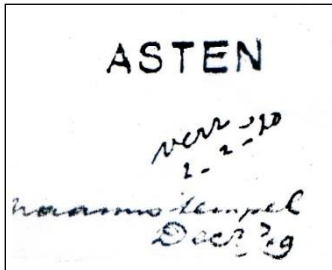 ASTEN
verz
2-2-20
naamstempel
Dec